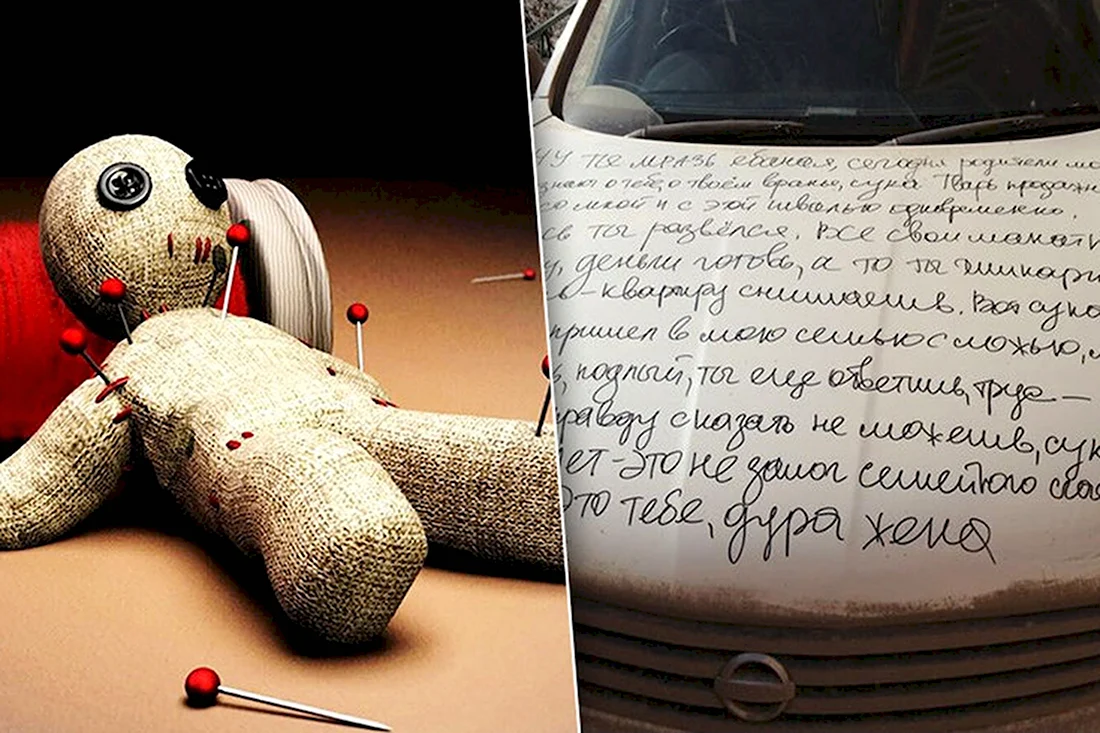 ты мразь ебаная, сегодня родители мо
знают о тебе, о твоём вранье, сука. Тварь продажн
со мной и с этой швалью одновременно.
сь ты развёлся. Все свои манатк
деньги готовь, а то ты шикарн
квартиру снимаешь. Вот сука
пришел в мою семью с ложью,
подлый, ты еще ответишь, трус —
равду сказать не можешь, сук
лет - это не залог семейного
Это тебе, дура жена